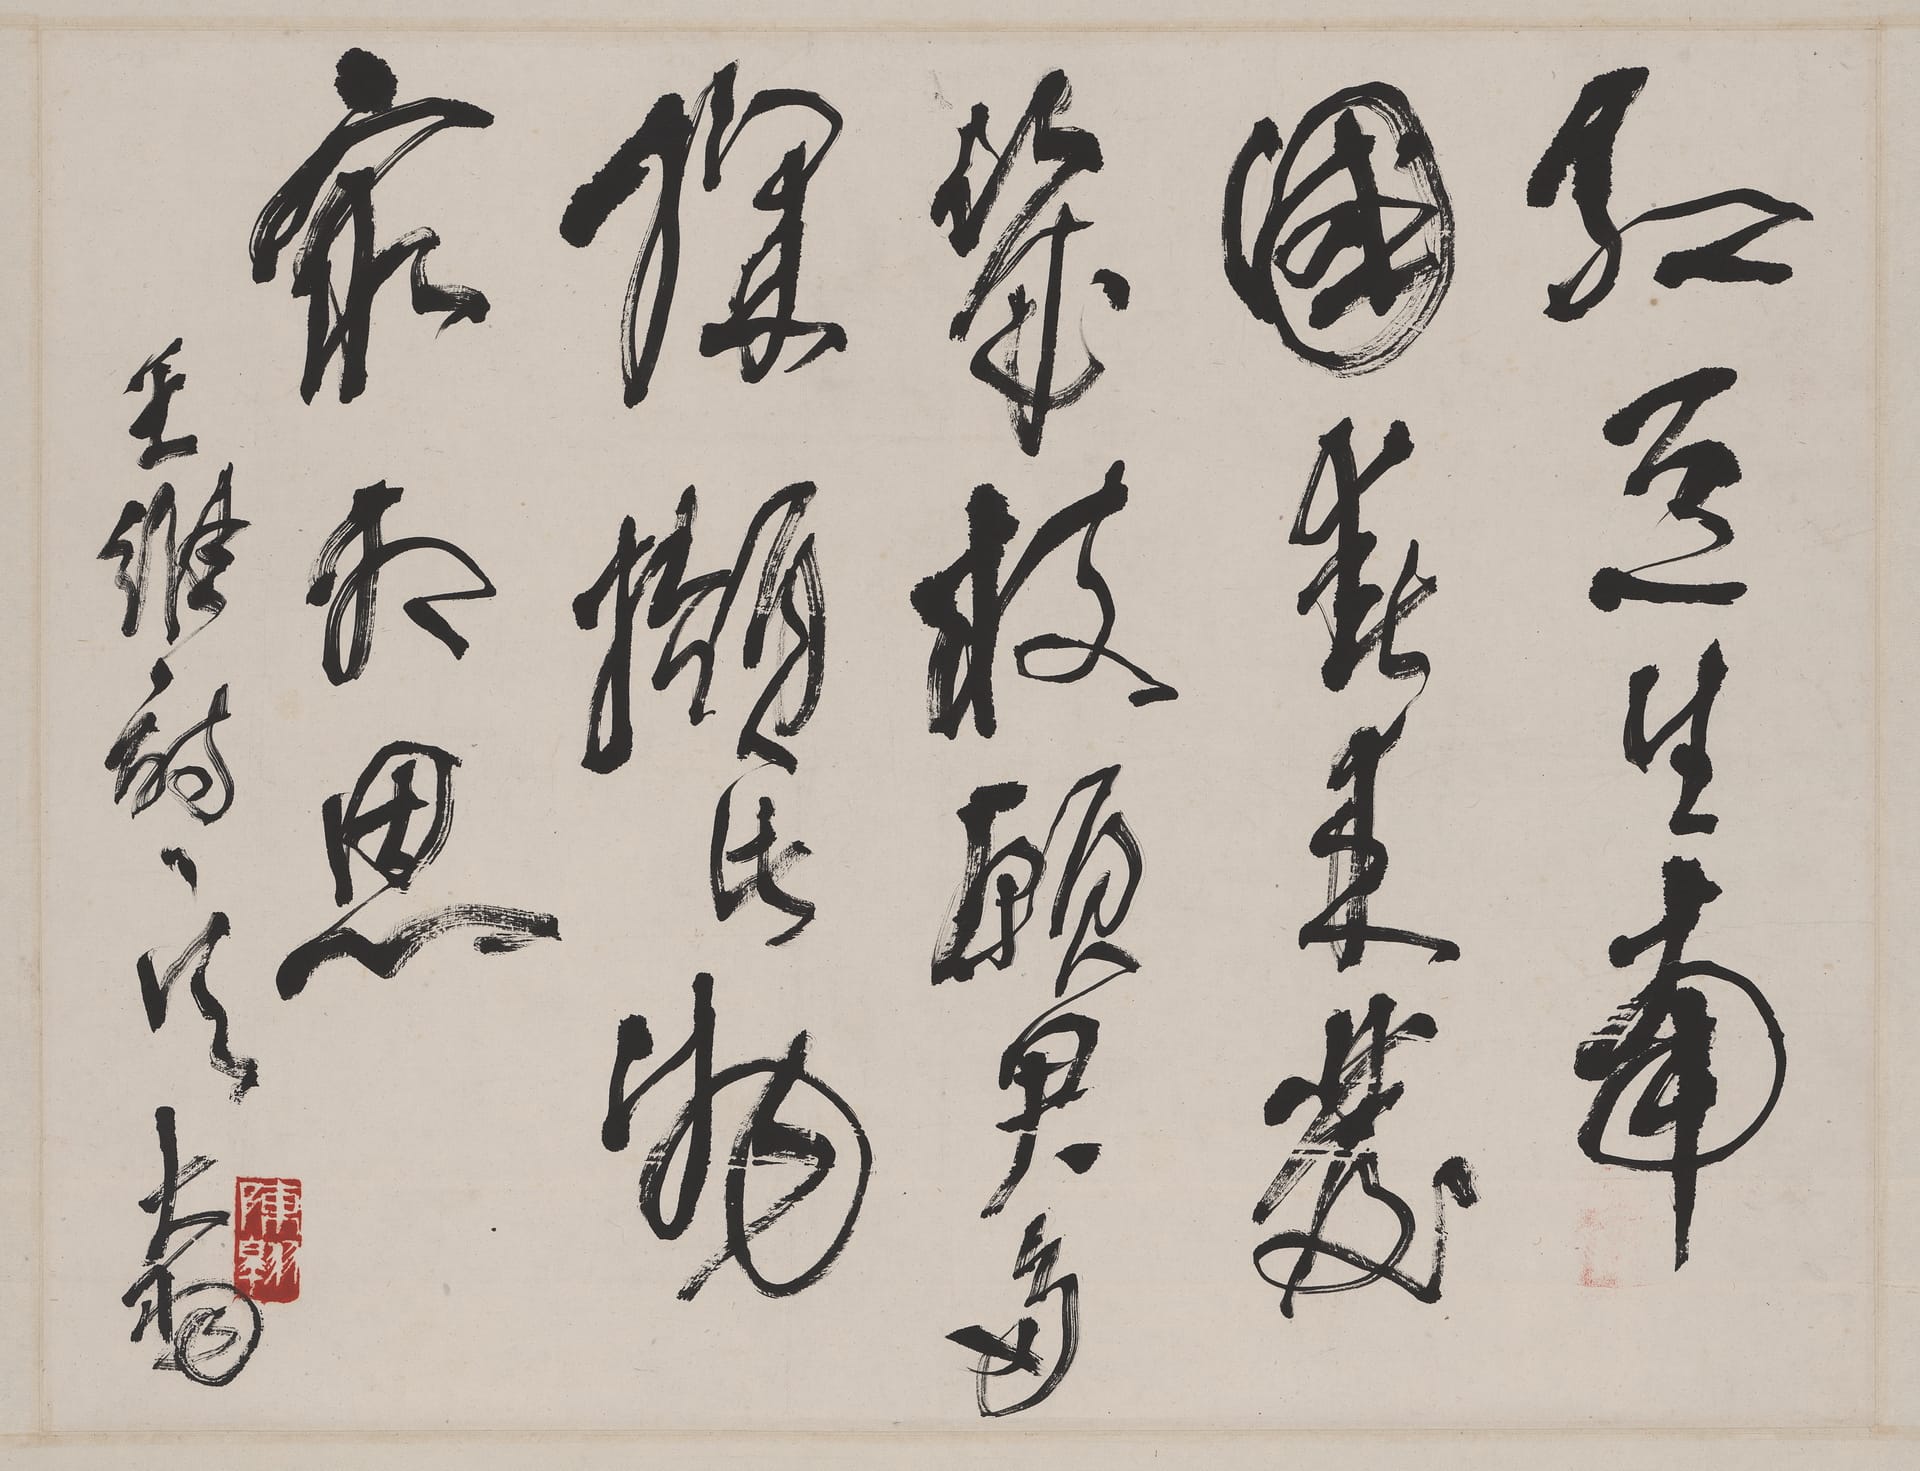 紅豆生南
國春來發
幾枝願君多
採擷此物
最相思
王維詩 大羽
陳翱